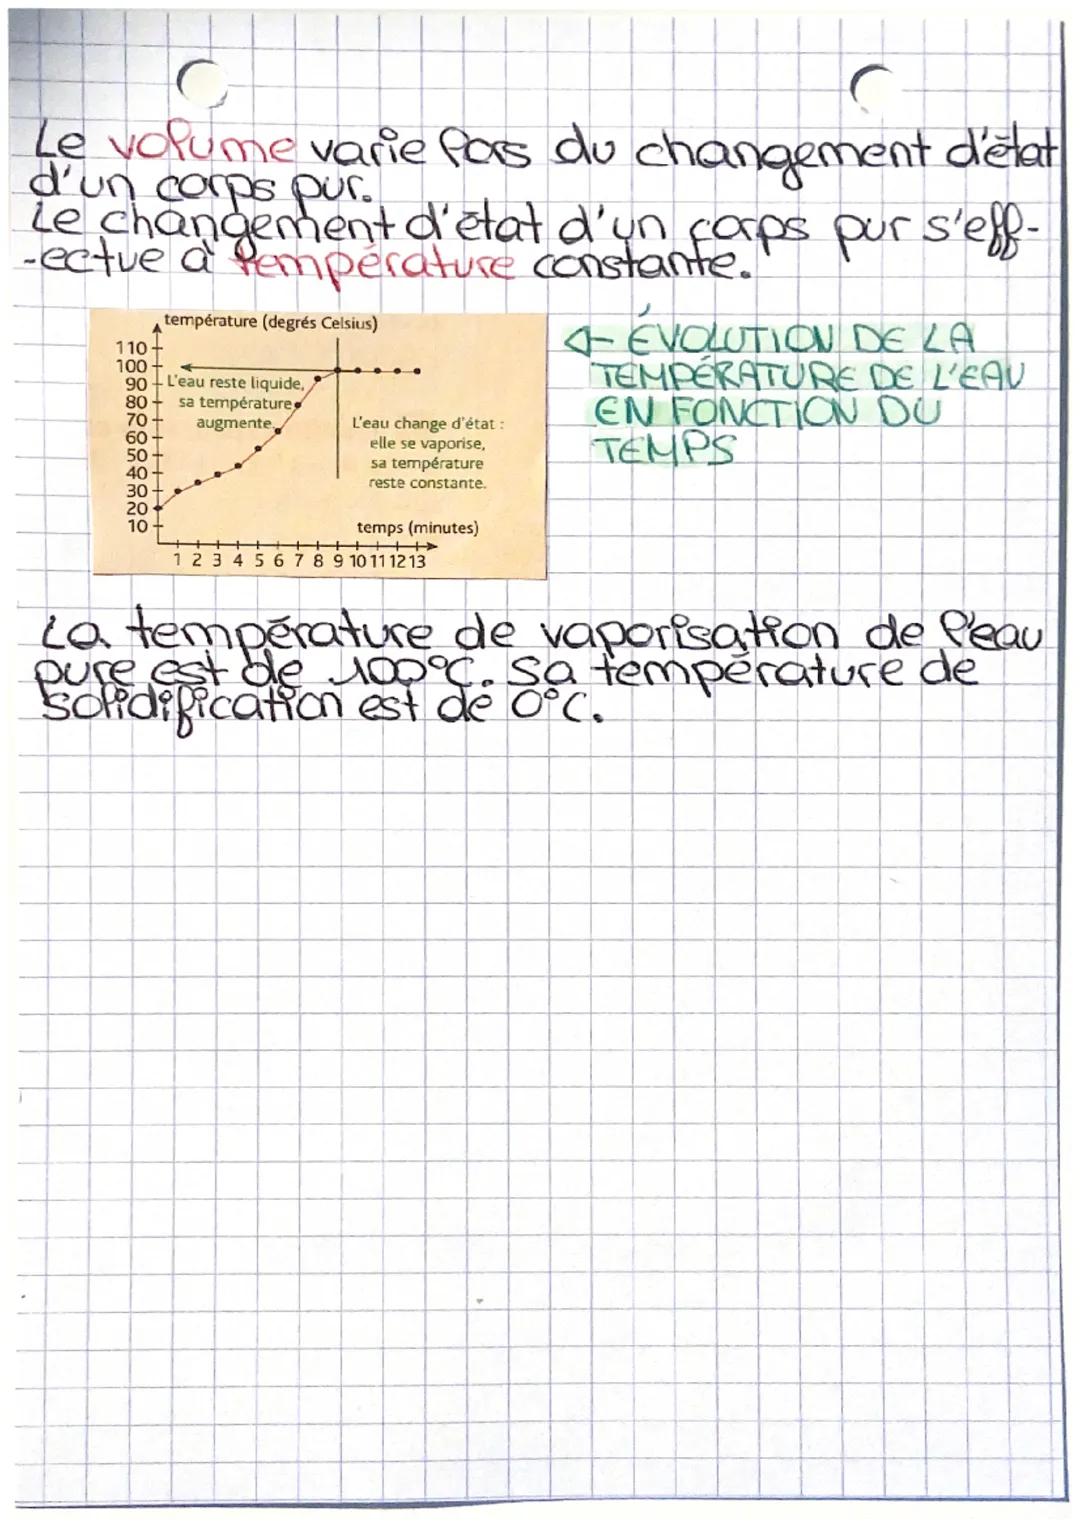 Le volume varie lors du changement d'état
d'un corps pur.
Le changement d'état d'un corps pur s'eff-
-ectue à température constante.
température (degrés Celsius)
110
100
90
80
70
60
50
40
30
20
10
L'eau reste liquide,
sa température
augmente.
L'eau change d'état :
elle se vaporise,
sa température
reste constante.
temps (minutes)
1 2 3 4 5 6 7 8 9 10 11 12 13
← ÉVOLUTION DE LA
TEMPÉRATURE DE L'EAU
EN FONCTION DU
TEMPS
La température de vaporisation de l'eau
pure est de 100°C. Sa température de
solidification est de 0°C.